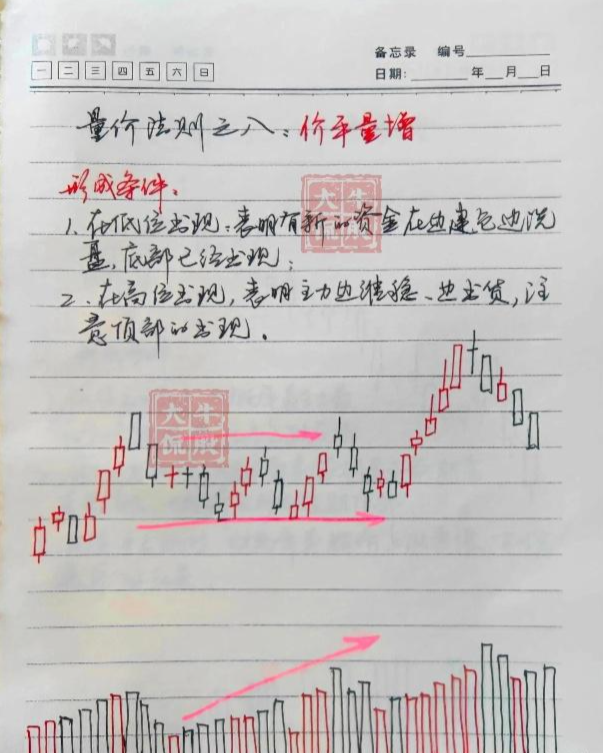 备忘录 编号
一 二 三 四 五 六 日
日期: 年 月 日
量价法则之八:价平量增
形成条件:
1. 在低位出现,表明有新的资金在边建仓边洗
盘,底部已经出现;
2. 在高位出现,表明主力边维稳、边出货,注
意顶部的出现。
大牛
侃股
大牛
侃股